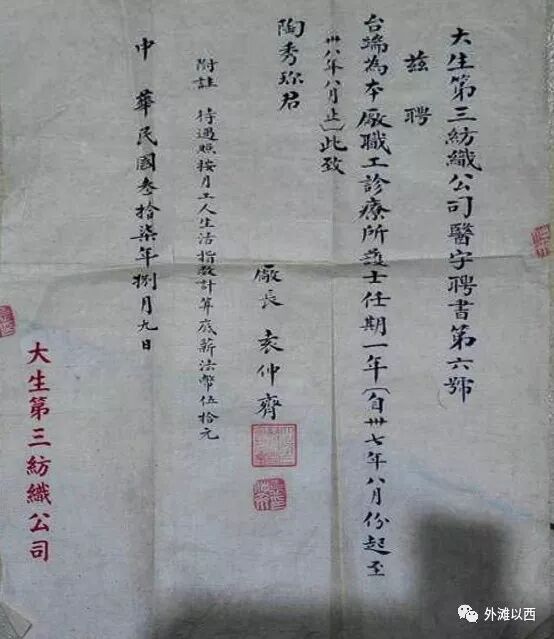 大生第三紡織公司醫字聘書第六號
茲聘
台端為本廠職工診療所護士任期一年(自卅七年八月份起至
卅八年八月止)此致
陶秀珎君
附註 待遇照按月工人生活指数計算底薪法幣伍拾元
廠長 袁仲齊
中華民國叁拾柒年捌月九日
大生第三紡織公司
外滩以西